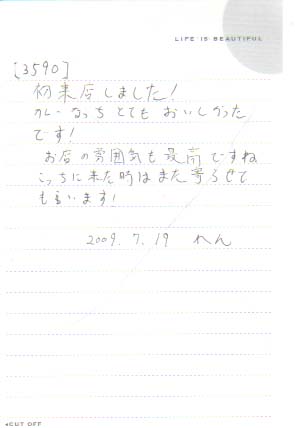 LIFE IS BEAUTIFUL
[3590]
初来店しました!
カレーなっち とても おいしかった
です!
お店の雰囲気も最高ですね
こっちに来た時はまた寄らせて
もらいます!
2009.7.19 れん
◂CUT OFF